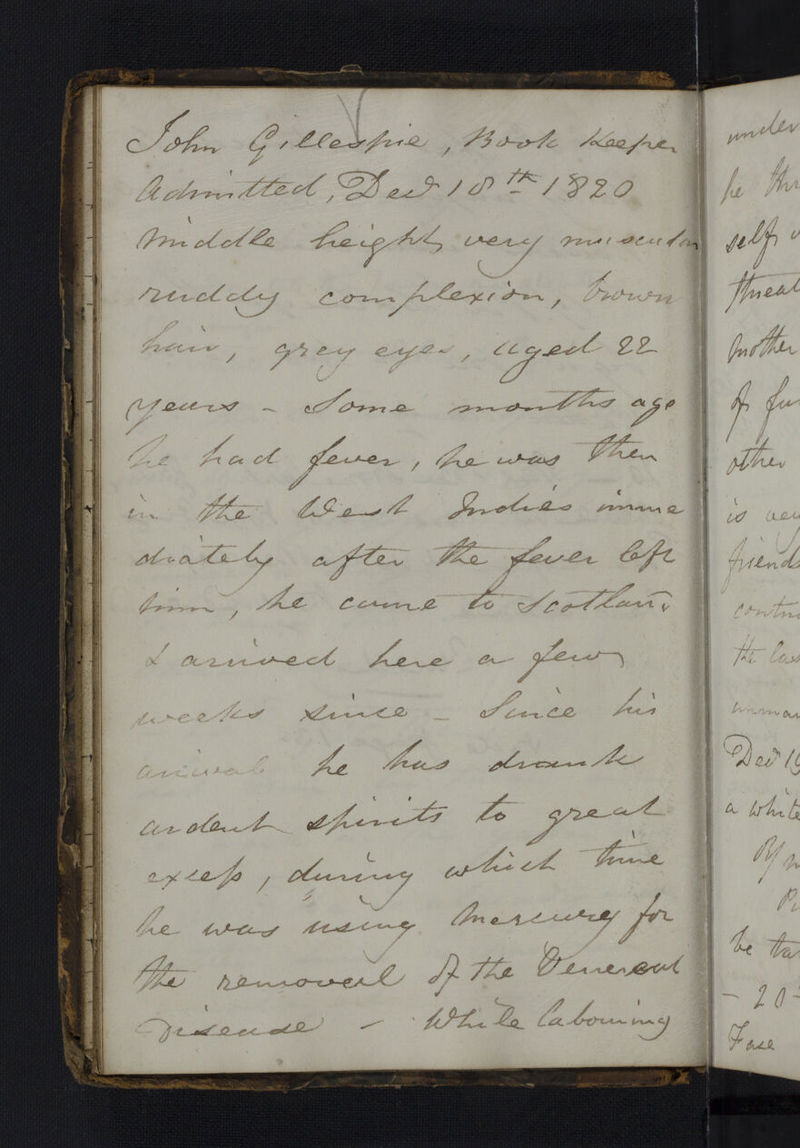 John Gillespie, Book Keeper
Admitted, Decr 18th 1820
Middle height, very muscular
ruddy complexion, brown
hair, grey eyes, aged 22
years - Some months ago
he had fever, he was then
in the West Indies imme
diately after the fever left
him, he came to Scotland
& arrived here a few
weeks since - Since his
arrival he has drank
ardent spirits to great
excess, during which time
he was using Mercury for
the removal of the Venereal
Disease - While labouring
under
he
self
threat
Mother
of
other
is
friends
the
Decr
a white
be
- 20